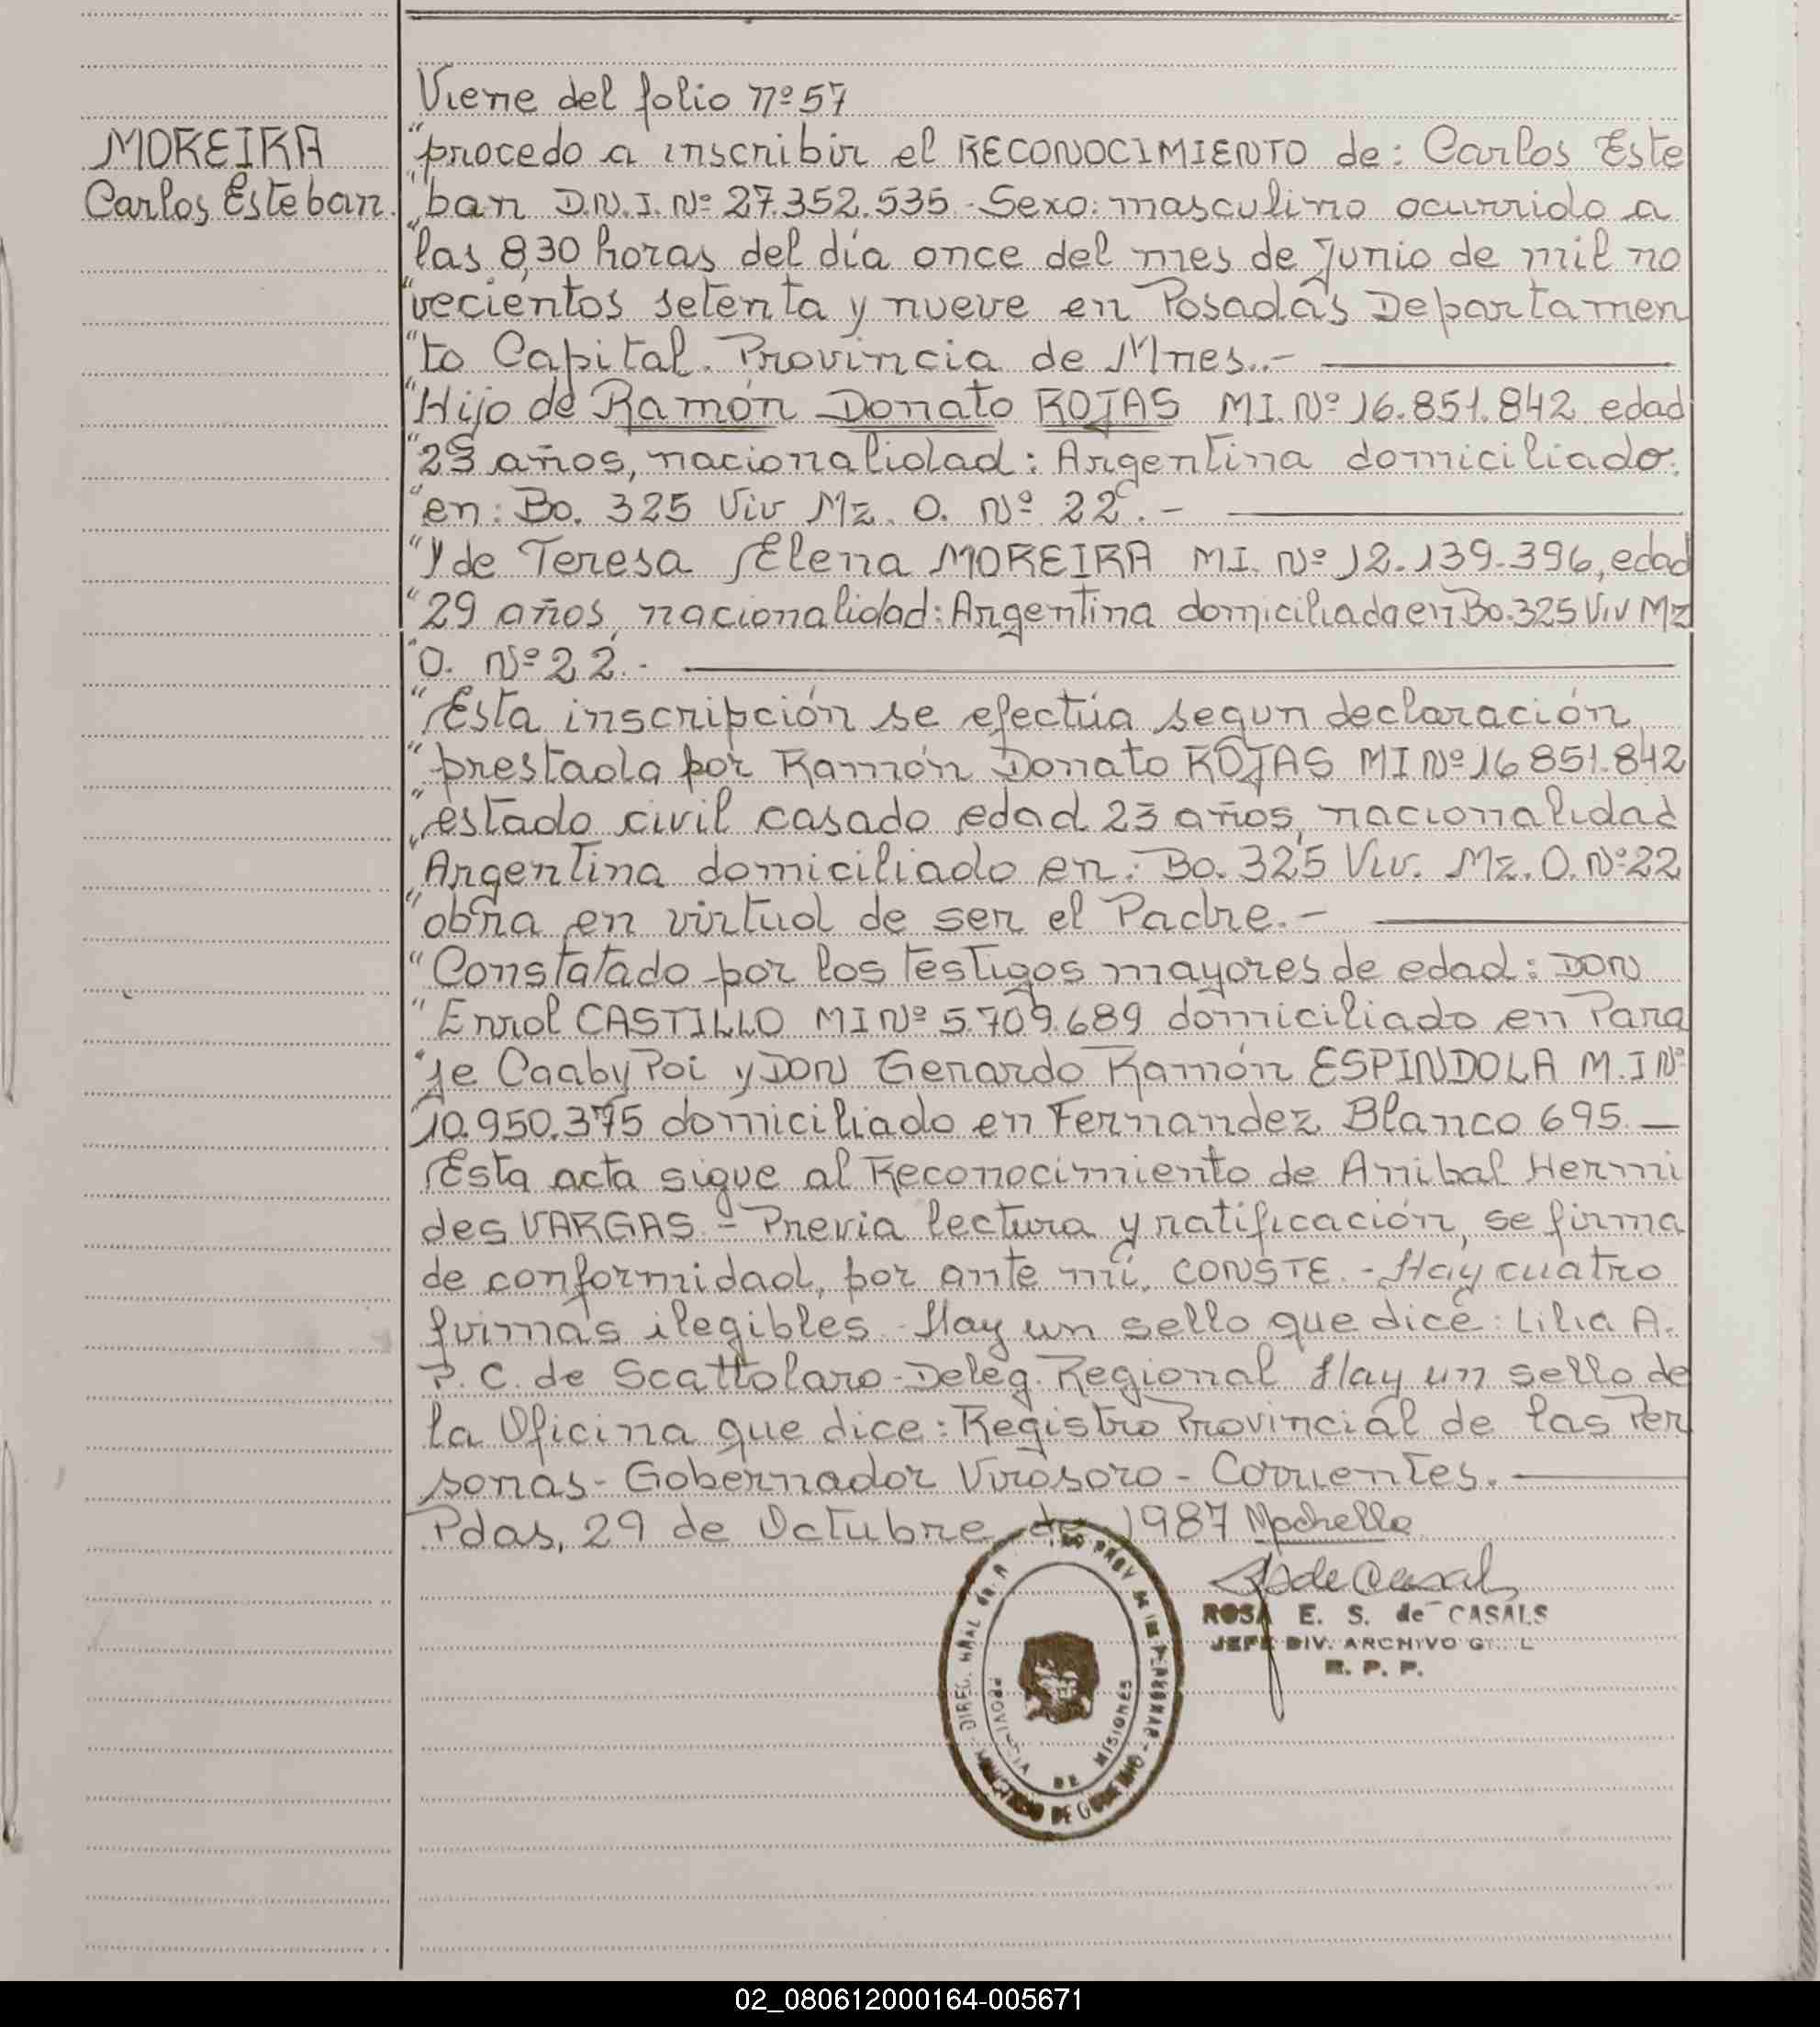 Viene del folio nº 57
MOREIRA
Carlos Esteban.
"procedo a inscribir el RECONOCIMIENTO de: Carlos Este
"ban D.N.I. Nº 27.352.535 - Sexo: masculino ocurrido a
"las 8,30 horas del día once del mes de Junio de mil no
"vecientos setenta y nueve en Posadas Departamen
"to Capital. Provincia de Mnes..-
"Hijo de Ramón Donato ROJAS MI. Nº 16.851.842 edad
"23 años, nacionalidad: Argentina domiciliado
"en: Bo. 325 Viv Mz. O. Nº 22. -
"y de Teresa Elena MOREIRA MI. Nº 12.139.396, edad
"29 años, nacionalidad: Argentina domiciliada en Bo. 325 Viv Mz
"O. Nº 22.-
"Esta inscripción se efectúa segun declaración
"prestada por Ramón Donato ROJAS MI Nº 16 851.842
"estado civil casado edad 23 años, nacionalidad
"Argentina domiciliado en: Bo. 325 Viv. Mz. O. Nº 22
"obra en virtud de ser el Padre.-
"Constatado por los testigos mayores de edad: DON
"Errol CASTILLO MI Nº 5.709.689 domiciliado en Para
"je Caaby Poi y DON Gerardo Ramón ESPINDOLA M.I Nº
"10.950.375 domiciliado en Fernandez Blanco 695.-
Esta acta sigue al Reconocimiento de Anibal Hermi
des VARGAS.- Previa lectura y ratificación, se firma
de conformidad, por ante mí, CONSTE. - Hay cuatro
firmas ilegibles. Hay un sello que dice: Lilia A.
P. C. de Scattolaro - Deleg. Regional Hay un sello de
la Oficina que dice: Registro Provincial de las Per
sonas - Gobernador Virosoro - Corrientes.-
Pdas, 29 de Octubre de 1987
ROSA E. S. de CASALS
JEFE DIV. ARCHIVO
R. P. P.
PROVINCIA DE MISIONES
02_080612000164-005671